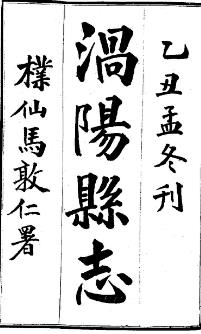 乙丑孟冬刊
渦陽縣志
樸仙馬敦仁署